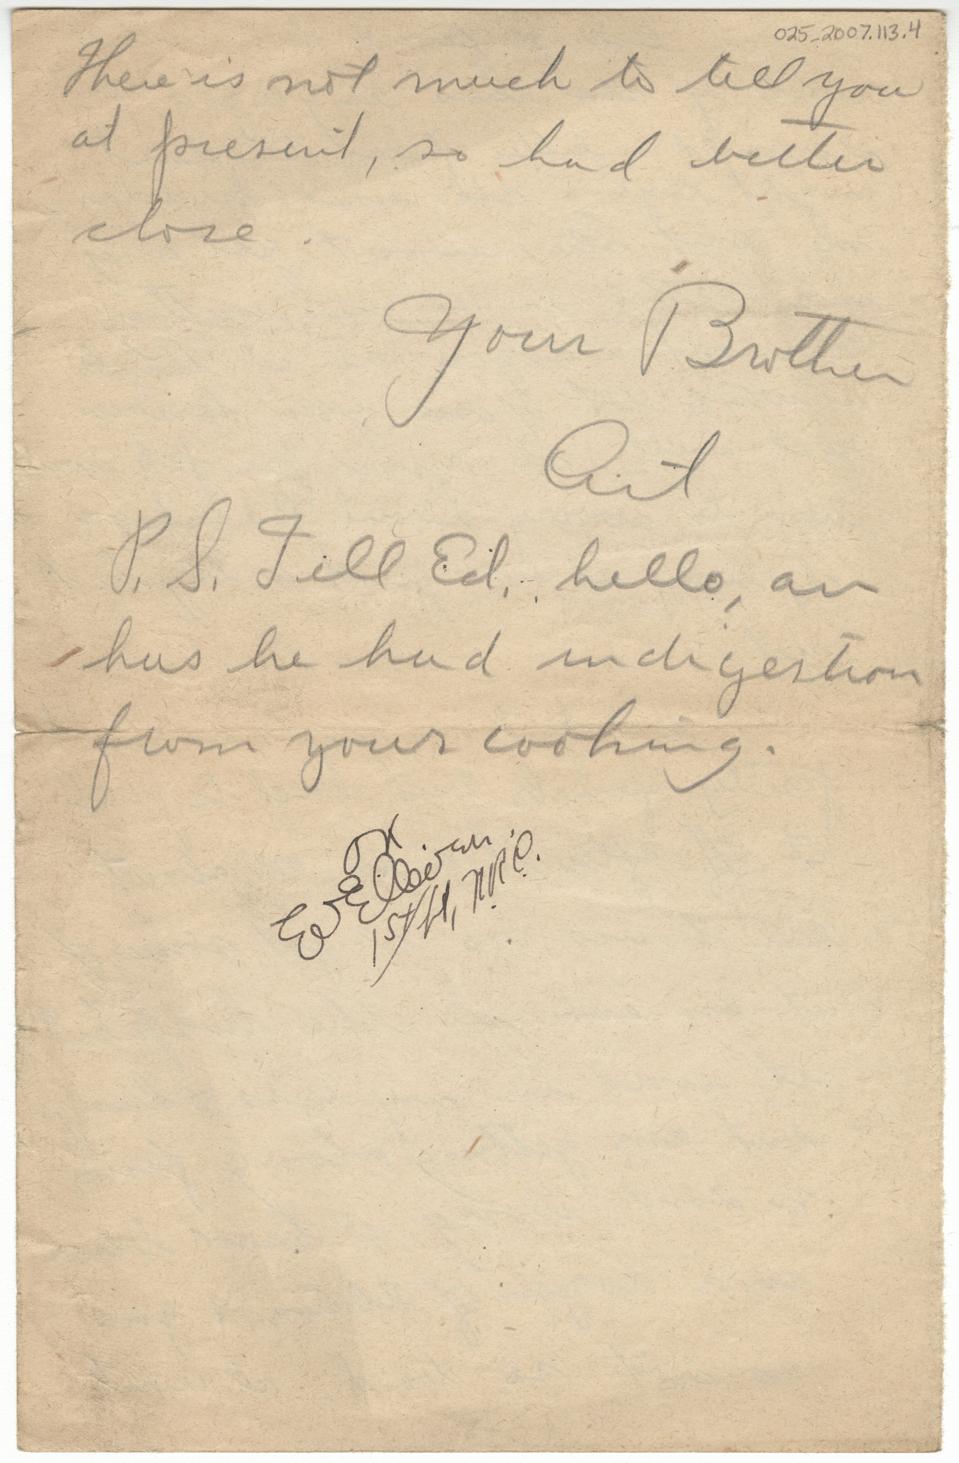 025_2007.113.4
There is not much to tell you
at present, so had better
close.
Your Brother
Art
P.S. Tell Ed. hello, an
has he had indigestion
from your cooking.
OK
1st Lt,